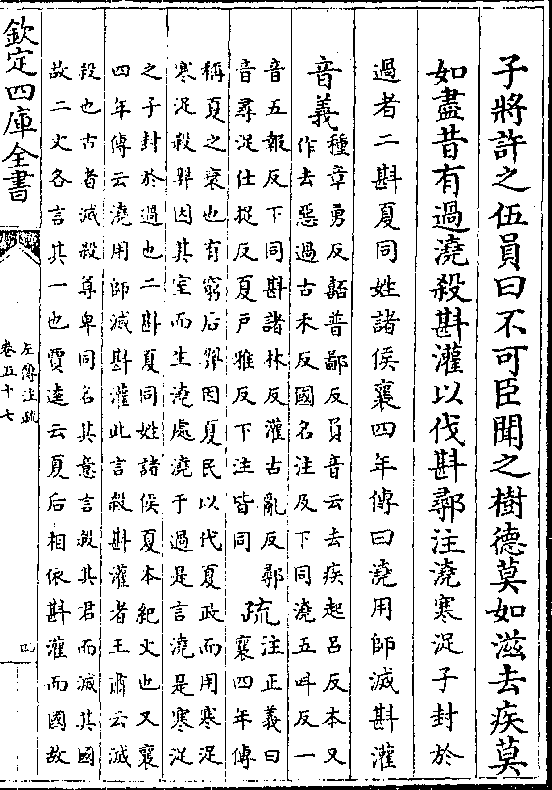 子將許之伍員曰不可臣聞之樹德莫如滋去疾莫
如盡昔有過澆殺斟灌以伐斟鄩注澆寒浞子封於
過者二斟夏同姓諸侯襄四年傳曰澆用師滅斟灌
音義種章勇反嚭普鄙反員音云去疾起呂反本又
作去惡過古禾反國名注及下同澆五呌反一
音五報反下同斟諸林反灌古亂反鄩
音尋浞仕捉反夏戶雅反下注皆同
疏注正義曰
襄四年傳
稱夏之衰也有窮后羿因夏民以代夏政而用寒浞
寒浞殺羿因其室而生澆處澆于過是言澆是寒浞
之子封於過也二斟夏同姓諸侯夏本紀文也又襄
四年傳云澆用師滅斟灌此言殺斟灌者王肅云滅
殺也古者滅殺尊卑同名其意言殺其君而滅其國
故二文各言其一也賈逵云夏后相依斟灌而國故
欽定四庫全書
左傳注疏
卷五十七
四